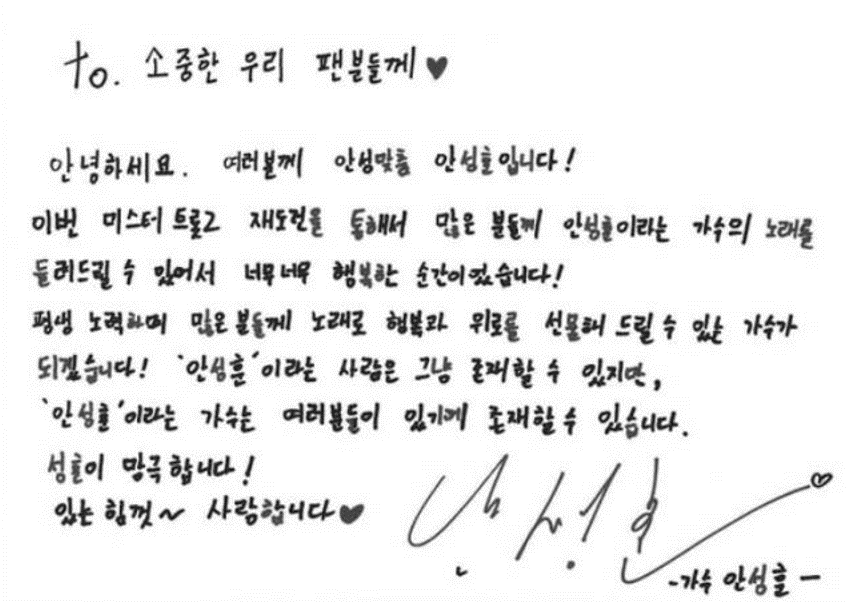 to. 소중한 우리 팬분들께♥
안녕하세요. 여러분께 안성맞춤 안성훈입니다!
이번 미스터트롯2 재도전을 통해서 많은 분들께 안성훈이라는 가수의 노래를
들려드릴 수 있어서 너무너무 행복한 순간이었습니다!
평생 노력하며 많은 분들께 노래로 행복과 위로를 선물해 드릴 수 있는 가수가
되겠습니다! '안성훈'이라는 사람은 그냥 존재할 수 있지만,
'안성훈'이라는 가수는 여러분들이 있기에 존재할 수 있습니다.
성훈이 망극합니다!
있는 힘껏~ 사랑합니다♥
안성훈
-가수 안성훈-